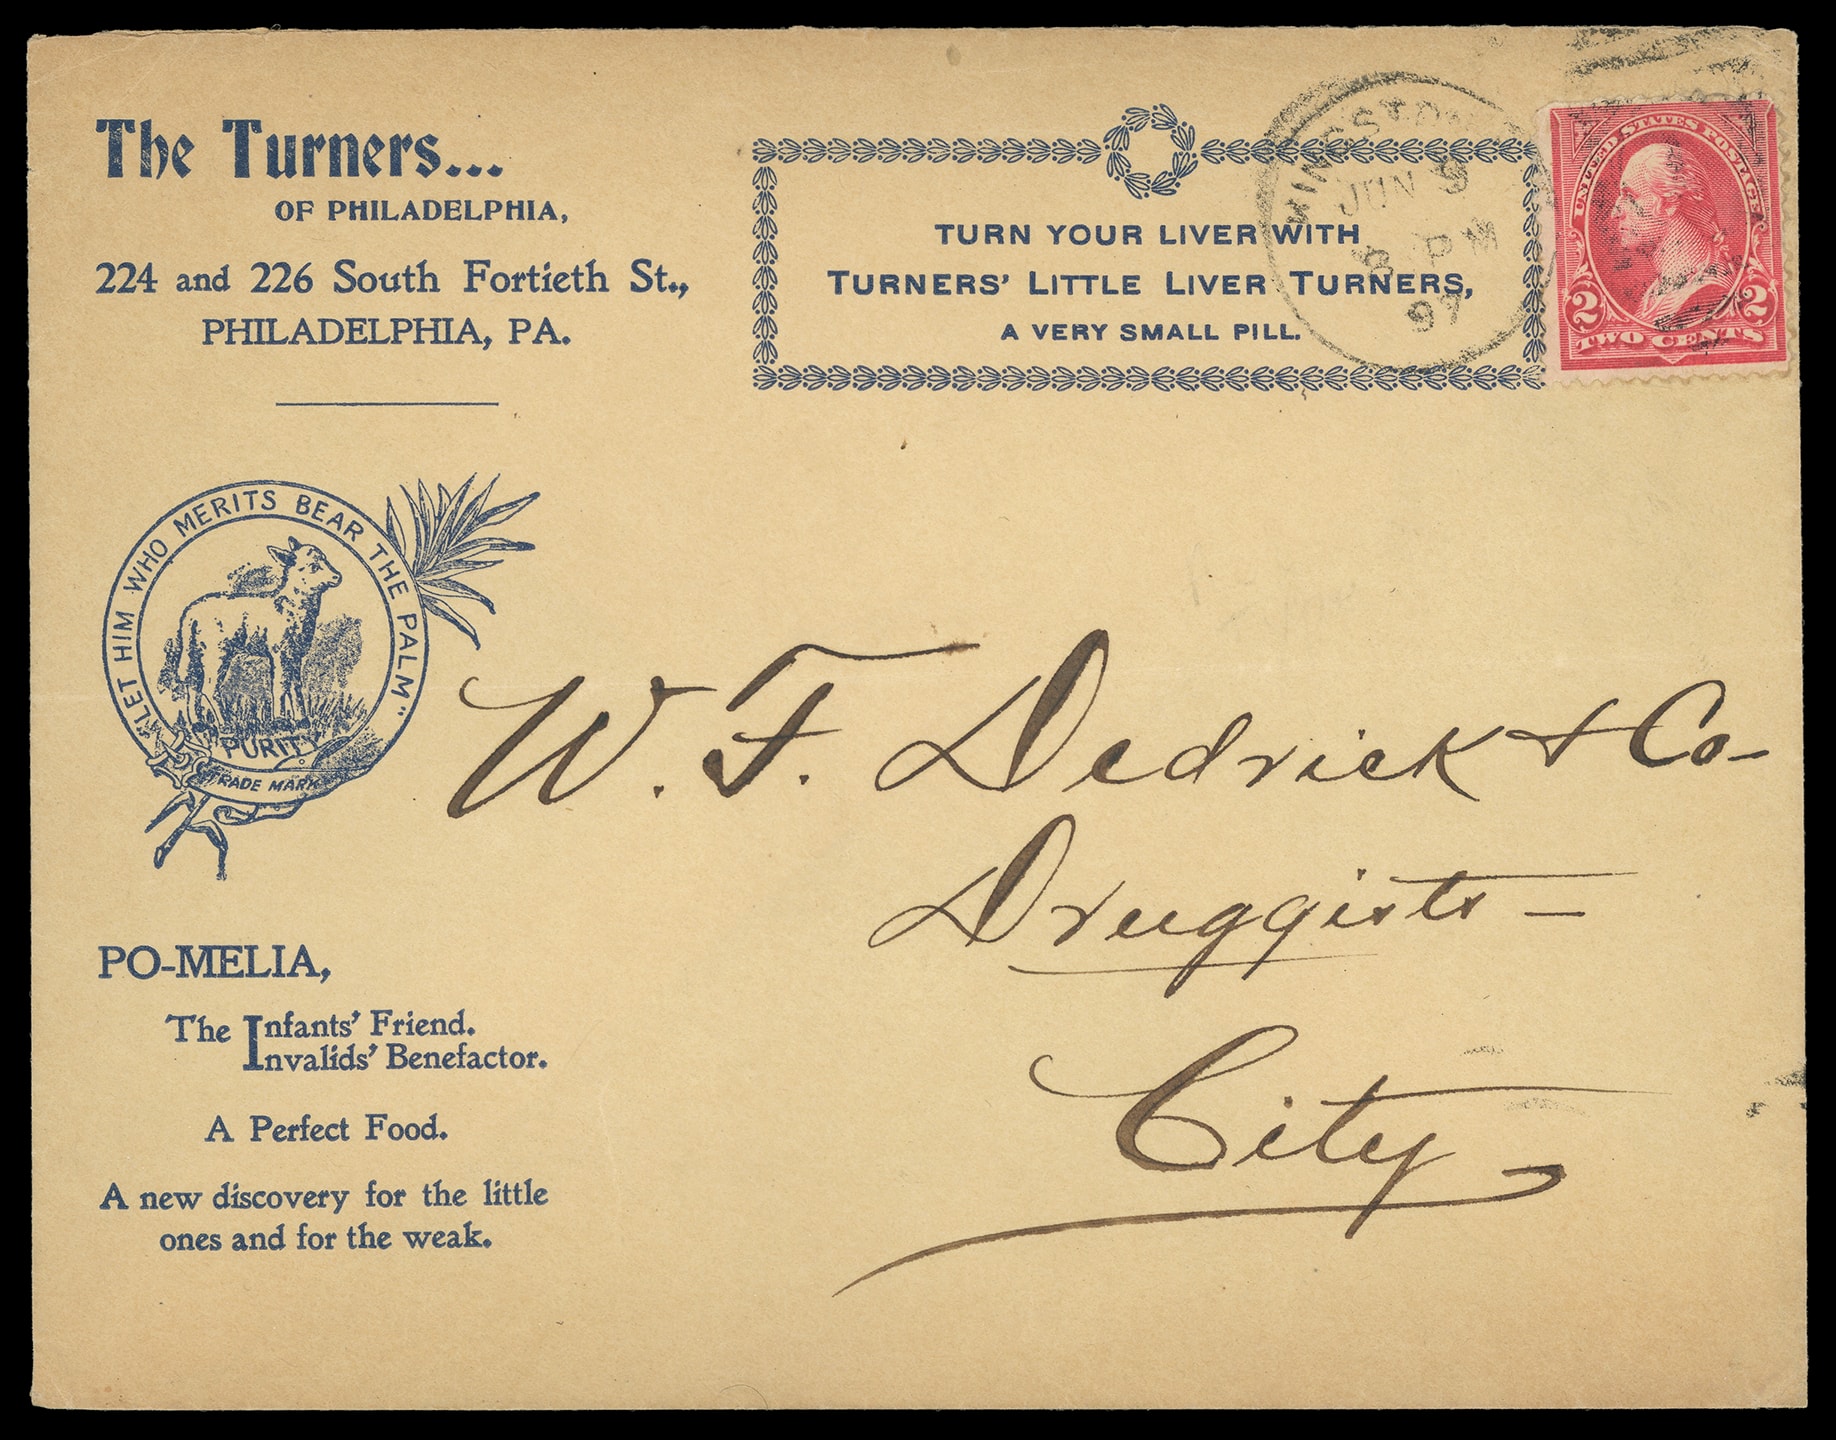 The Turners...
OF PHILADELPHIA,
224 and 226 South Fortieth St.,
PHILADELPHIA, PA.
TURN YOUR LIVER WITH
TURNERS' LITTLE LIVER TURNERS,
A VERY SMALL PILL.
KINGSTON
JUN 9
8 PM
97
UNITED STATES POSTAGE
2 2
TWO CENTS
"LET HIM WHO MERITS BEAR THE PALM"
PURITY
TRADE MARK
W. F. Dedrick & Co-
Druggists -
City
PO-MELIA,
The Infants' Friend.
Invalids' Benefactor.
A Perfect Food.
A new discovery for the little
ones and for the weak.